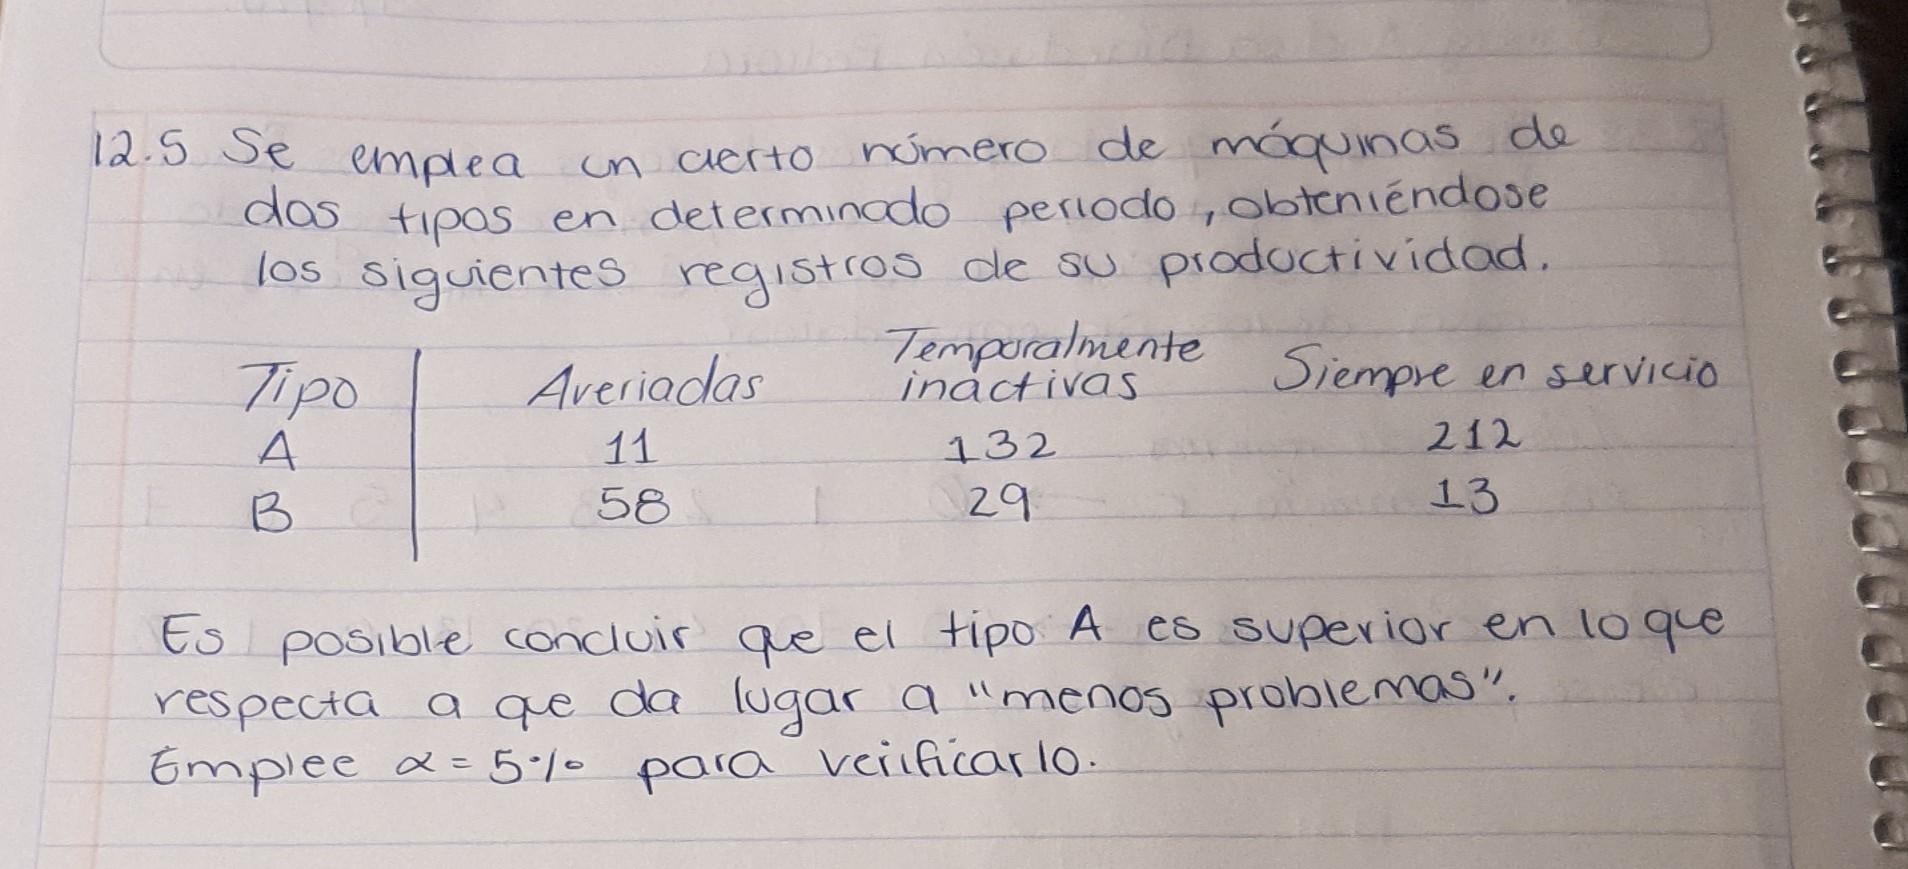 12.5 Se emplea un cierto número de máquinas de
dos tipos en determinado periodo, obteniéndose
los siguientes registros de su productividad.
Tipo Averiadas Temporalmente inactivas Siempre en servicio
A 11 132 212
B 58 29 13
Es posible concluir que el tipo A es superior en lo que
respecta a que da lugar a "menos problemas".
Emplee α = 5% para verificarlo.